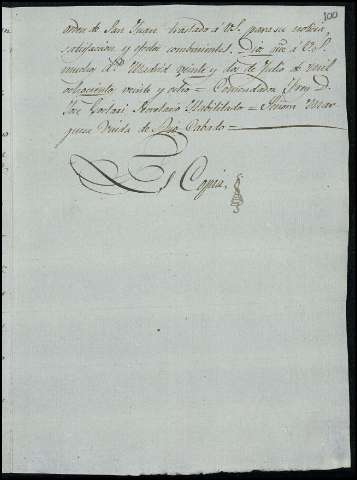 100
orden de San Juan traslado á V.S. para su noticia,
satisfaccion y efectos combenientes. Dios gũe á V.S.
muchos a.s Madrid veinte y dos de Julio de mil
ochocientos veinte y ocho = Comendador Frey D.
José Gostari Secretario Habilitado = Señora Mar-
quesa Viuda de Rio Cabado =
Es Copia,